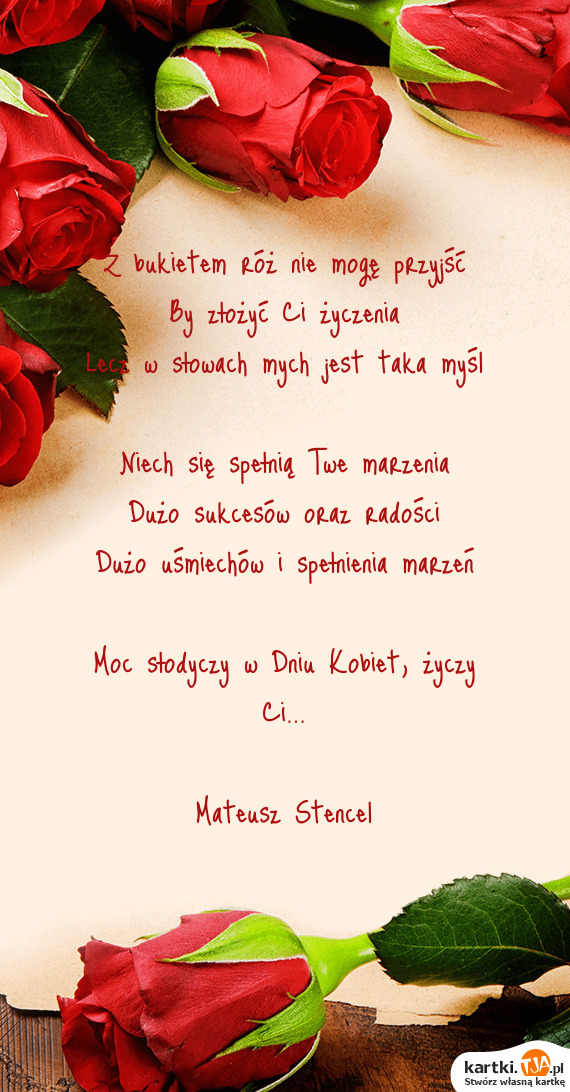 Z bukietem róż nie mogę przyjść
By złożyć Ci życzenia
Lecz w słowach mych jest taka myśl
Niech się spełnią Twe marzenia
Dużo sukcesów oraz radości
Dużo uśmiechów i spełnienia marzeń
Moc słodyczy w Dniu Kobiet, życzy
Ci...
Mateusz Stencel
kartki.TJA.pl
Stwórz własną kartkę